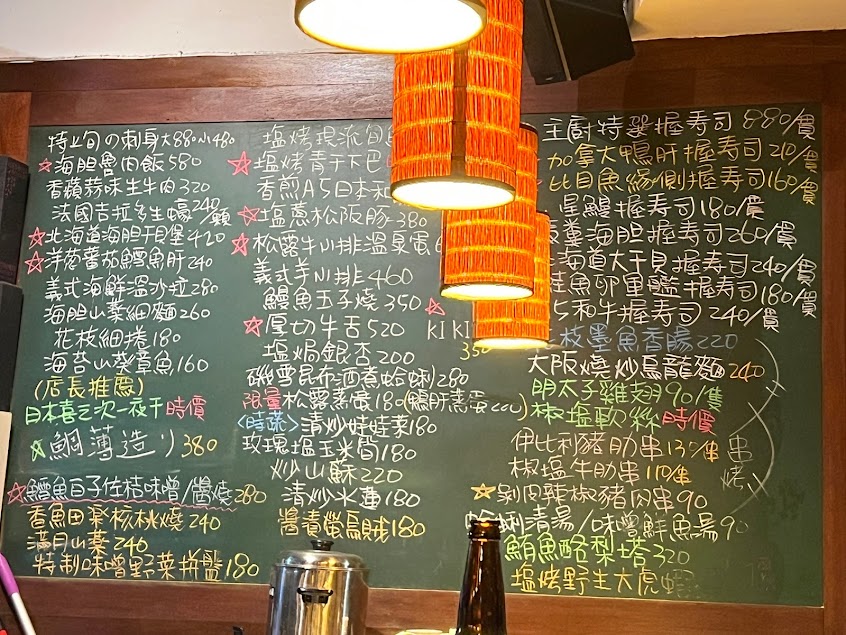 特上旬の刺身大880小480
海胆魯肉飯580
香蘋蒜味生牛肉320
法國吉拉多生蠔240/顆
北海道海胆干貝堡420
洋蔥番茄鱈魚肝240
義式海鮮溫沙拉280
海胆山藥細麵260
花枝細捲180
海苔山葵章魚160
(店長推薦)
日本喜之次一夜干時價
鯛薄造り380
鱈魚白子佐桔味噌/醬燒280
香魚田樂核桃燒240
滿月山藥240
特制味噌野菜拼盤180
塩烤現流旬
塩烤青干下巴
香煎A5日本和
塩蔥松阪豚380
松露牛小排溫泉蛋6
義式羊小排460
鰻魚玉子燒350
厚切牛舌520
塩焗銀杏200
磯雪昆布酒煮蛤蜊280
限量松露蒸蛋180(鴨肝蒸蛋200)
<時蔬>清炒娃娃菜180
玫瑰塩玉米筍180
炒山蘇220
清炒水蓮180
醬漬螢烏賊180
KIKI
350
主廚特選握寿司880/貫
加拿大鴨肝握寿司210/貫
比目魚緣側握寿司160/貫
星鰻握寿司180/貫
海胆握寿司260/貫
海道大干貝握寿司240/貫
鮭魚卵軍艦握寿司180/貫
5和牛握寿司240/貫
枝墨魚香腸220
大阪燒炒烏龍麵240
明太子雞翅90/隻
椒塩軟絲時價
伊比利豬肋串130/串
椒塩牛肋串110/串
串烤
剝肉辣椒豬肉串90
蛤蜊清湯/味噌鮮魚湯90
鮪魚酪梨塔320
塩烤野生大虎